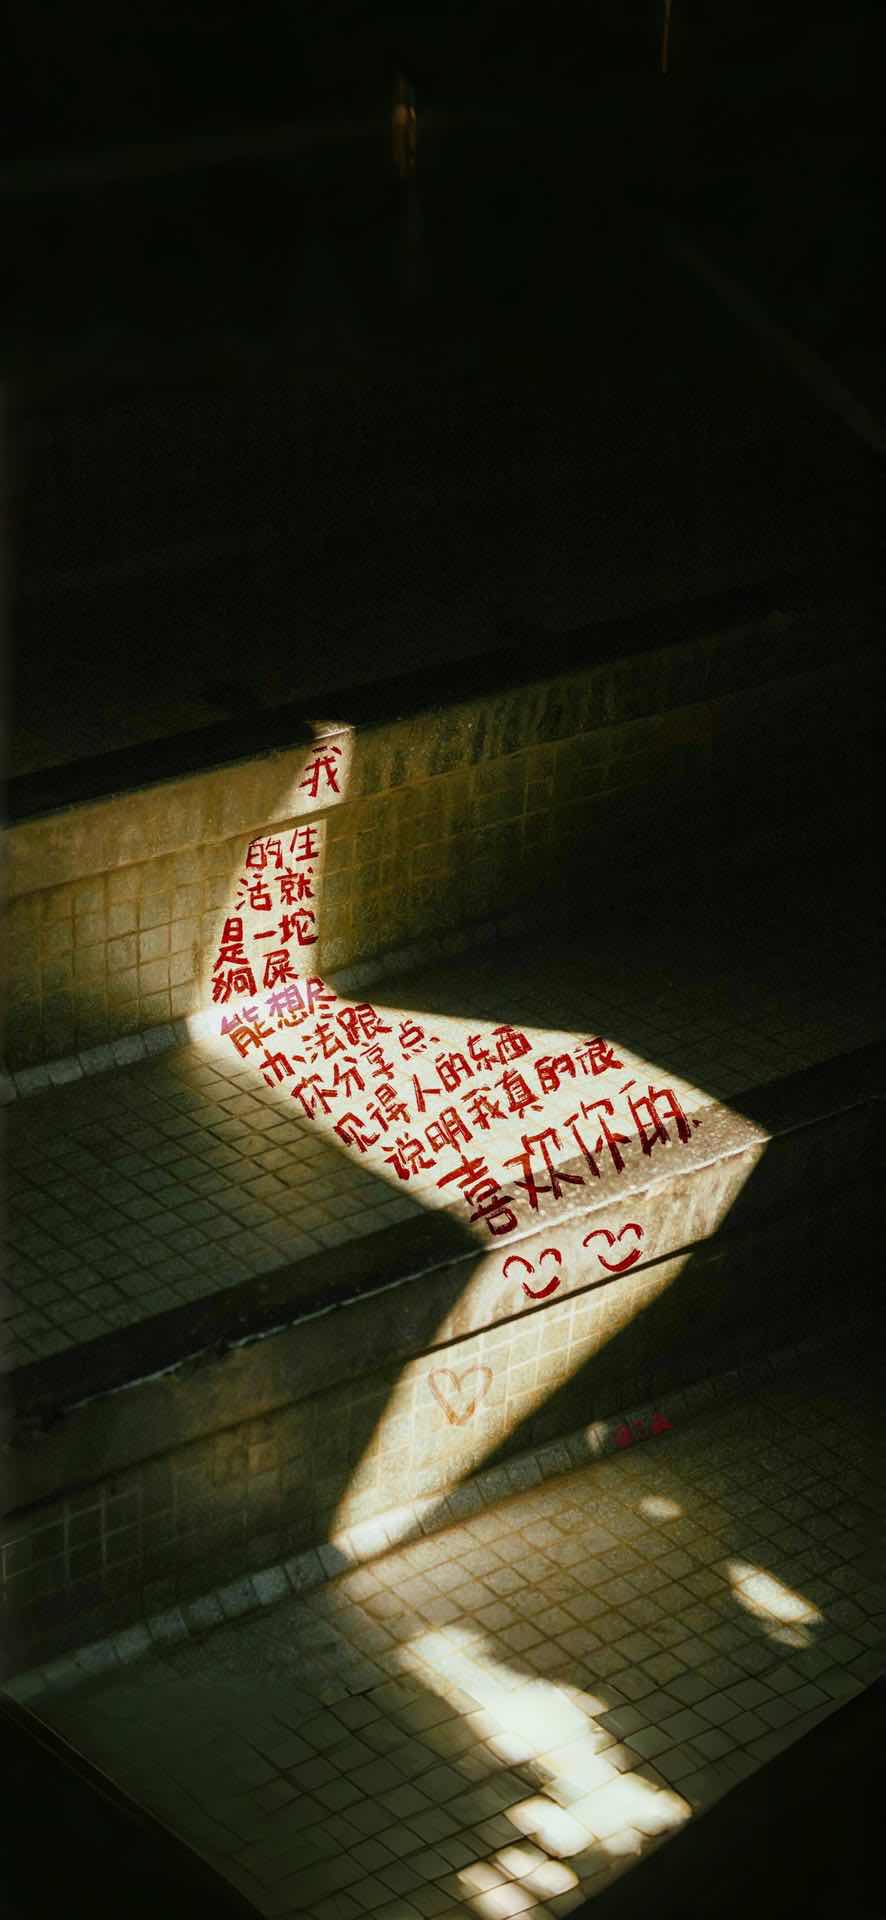 我
的生
活就
是一坨
狗屎
能想尽
办法跟
你分享点
见得人的东西
说明我真的很
喜欢你的